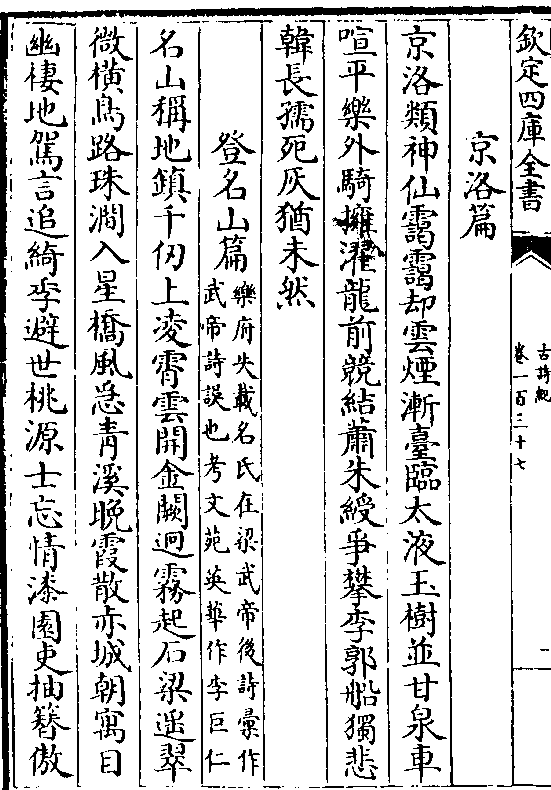 欽定四庫全書
古詩紀
卷一百三十七
二
京洛篇
京洛類神仙靄靄却雲煙漸臺臨太液玉樹並甘泉車
喧平樂外騎擁濯龍前競結蕭朱綬爭攀李郭船獨悲
韓長孺死灰猶未然
登名山篇
樂府失載名氏在梁武帝後詩彙作
武帝詩誤也考文苑英華作李巨仁
名山稱地鎮千仞上凌霄雲開金闕迥霧起石梁遥翠
微横鳥路珠澗入星橋風急青溪晚霞散赤城朝寓目
幽棲地駕言追綺季避世桃源士忘情漆園吏抽簪傲